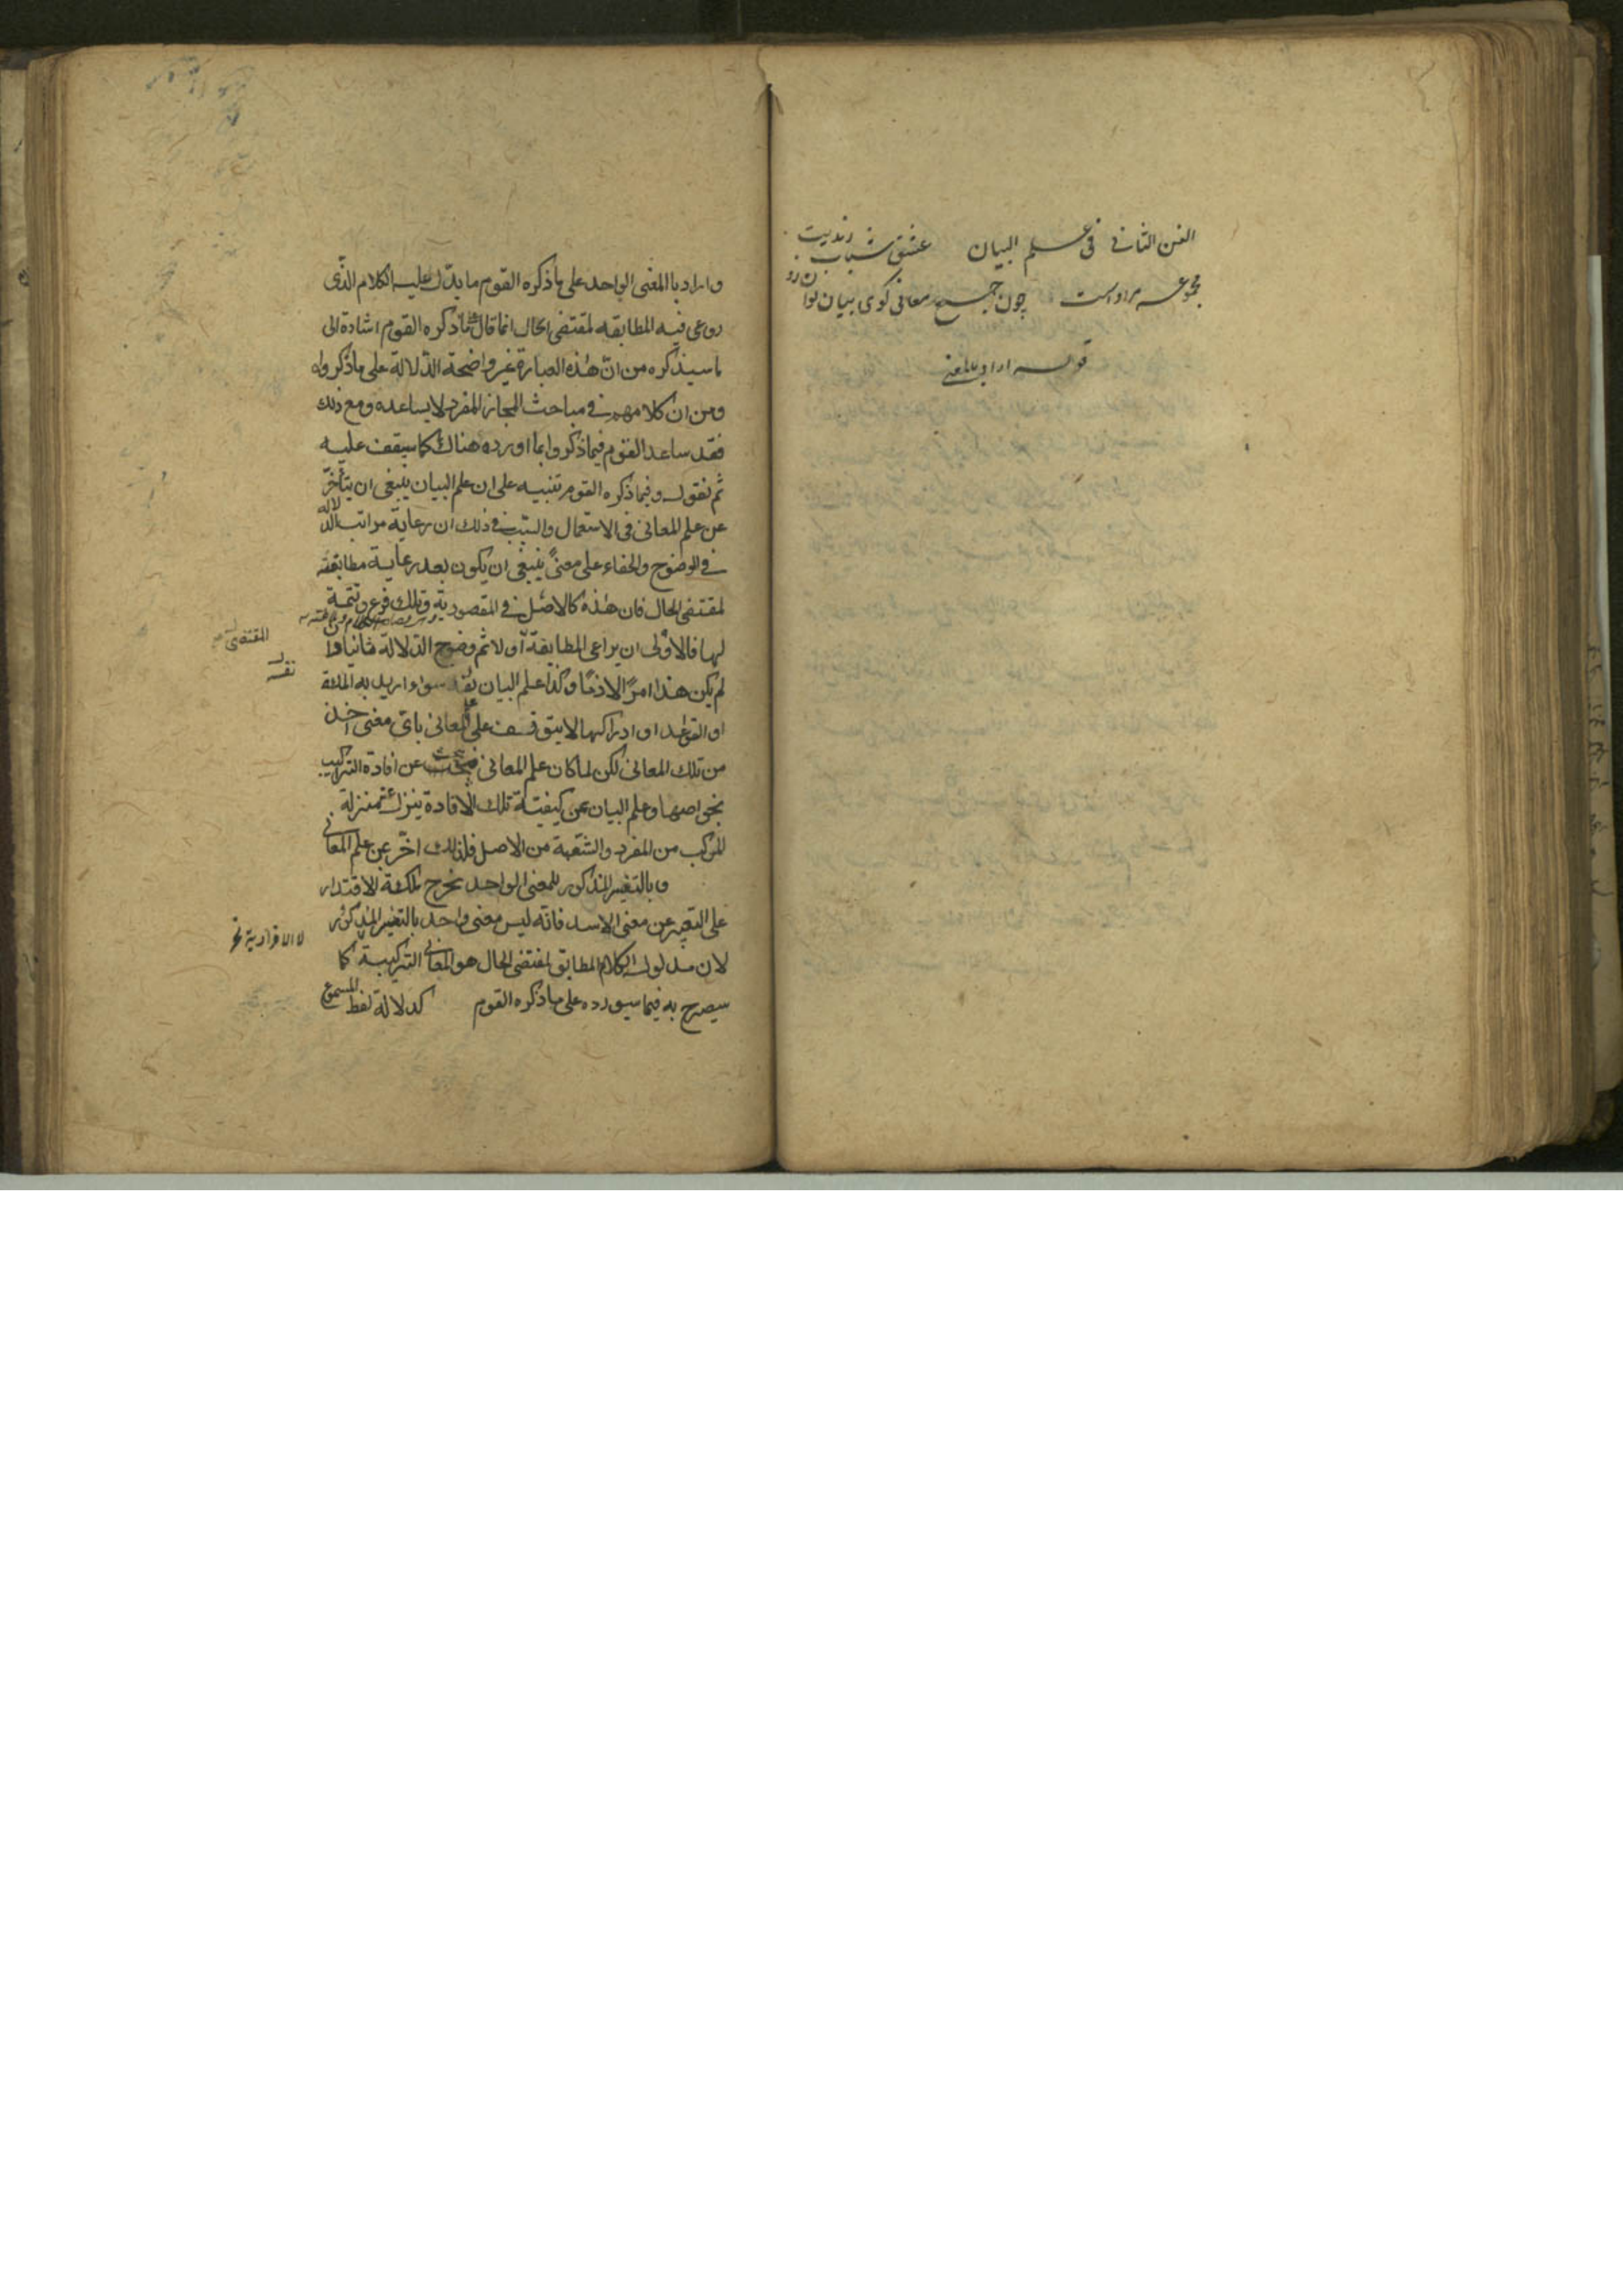 الفن الثانی فی علم البیان عشق شباب رندیت
مجموعه مراد است چون جمع معانی کوی بیان توا
قوله اراد بالمعنی
واراد باالمعنى الواحد على ما ذكره القوم ما يدل عليه الكلام الذى
روعى فيه المطابقه لمقتضى الحال انما قال ما ذكره القوم اشارة الى
ما سيذكره من ان هذه العبارة غير واضحة الدلالة على ما ذكروه
ومن ان كلامهم فى مباحث المجاز المفرد لا يساعده ومع ذلك
فقد ساعد القوم فيما ذكروا بما اورده هناك كما سيقف عليه
ثم نقول وفيما ذكره القوم تنبيه على ان علم البيان ينبغى ان يتأخر
عن علم المعانى فى الاستعمال والسبب فى ذلك ان رعاية مراتب الدلالة
فى الوضوح والخفاء على معنى ينبغى ان يكون بعد رعاية مطابقته
لمقتضى الحال فان هذه كالاصل فى المقصودية وتلك فرع وتتمة
لها فالاولى ان يراعى المطابقة اولا ثم وضوح الدلالة ثانيا وا
لم يكن هذا امرا لازما وكذا علم البيان نفسه سواء اريد به الملكة
او القواعد او ادراكها لا يتوقف على علم المعانى باى معنى اخذ
من تلك المعانى لكن لما كان علم المعانى يبحث عن افادة التراكيب
بخواصها وعلم البيان عن كيفية تلك الافادة ينزل منه منزلة
المركب من المفرد والشعبة من الاصل فلذلك اخر عن علم المعانى
وبالتفسير المذكور للمعنى الواحد يخرج ملكة الاقتدار
على التعبير عن معنى الاسد فانه ليس معنى واحد بالتفسير المذكور
لان مدلول الكلام المطابق لمقتضى الحال هو المعانى التركيبية كما
سيصرح به فيما سيورده على ما ذكره القوم كدلالة لفظ المسموع
المقتضى
نفسه
لا الافرادية